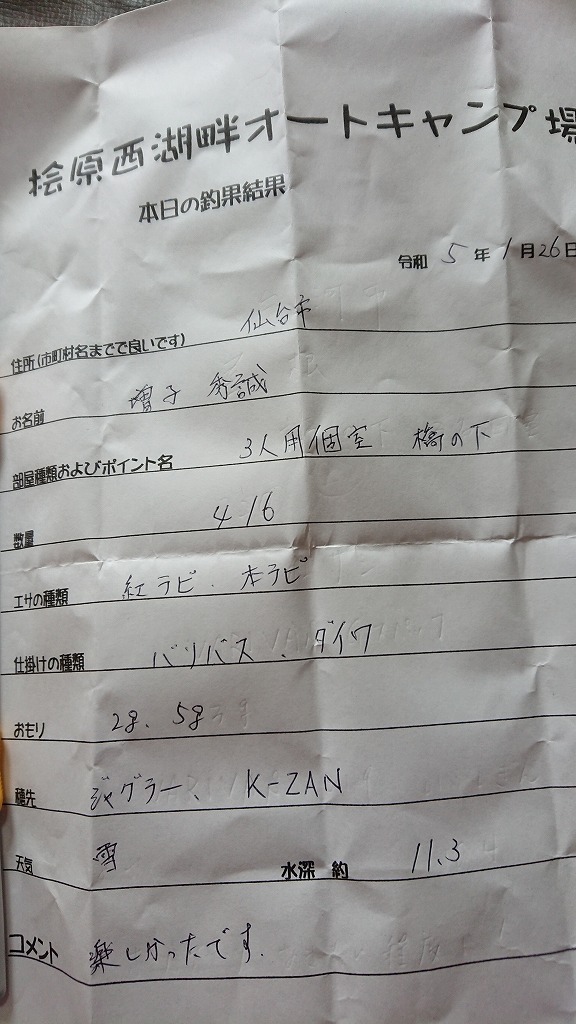 桧原西湖畔オートキャンプ場
本日の釣果結果
令和 5 年 1 月 26 日
住所(市町村名までで良いです) 仙台市
お名前 増子 秀誠
部屋種類およびポイント名 3人用個室 橋の下
数量 416
エサの種類 紅ラビ、本ラビ
仕掛けの種類 バリバス、ダイワ
おもり 2g、5g
穂先 ジャグラー、K-ZAN
天気 雪 水深 約 11.3
コメント 楽しかったです。